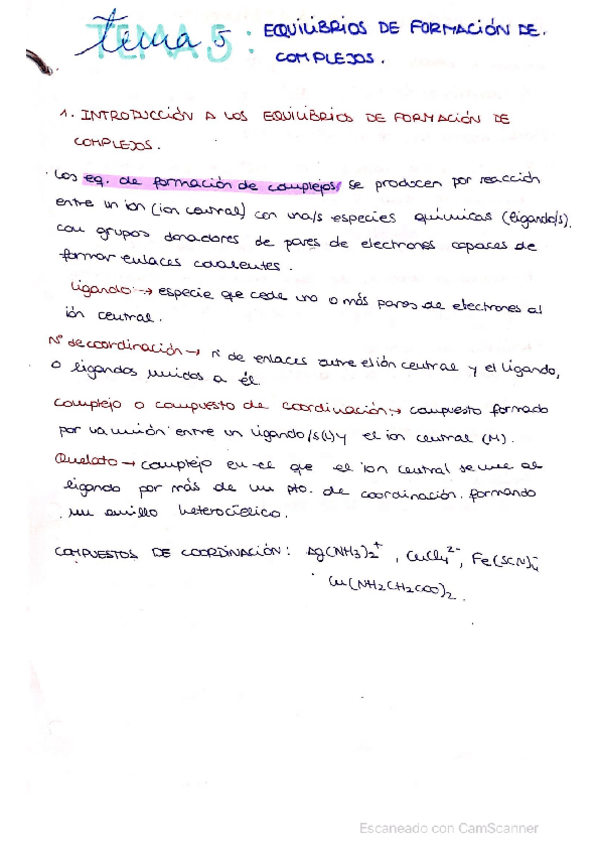 tema 5 : EQUILIBRIOS DE FORMACIÓN DE
COMPLEJOS.
1. INTRODUCCIÓN A LOS EQUILIBRIOS DE FORMACIÓN DE
COMPLEJOS.
· Los eq. de formación de complejos se producen por reacción
entre un ion (ion central) con una/s especies químicas (ligando/s).
con grupos donadores de pares de electrones capaces de
formar enlaces covalentes.
Ligando: → especie que cede uno o más pares de electrones al
ión central.
Nº de coordinación → nº de enlaces entre el ión central y el ligando,
o ligandos unidos a él
Complejo o compuesto de coordinación → compuesto formado
por la unión entre un ligando/s (L) y el ion central (M).
Quelato → complejo en el que el ion central se une al
ligando por más de un pto. de coordinación formando
un anillo heterocíclico.
COMPUESTOS DE COORDINACIÓN: Ag(NH3)2+, CuCl4 2-, Fe(SCN)4-
Cu(NH2CH2COO)2.
Escaneado con CamScanner